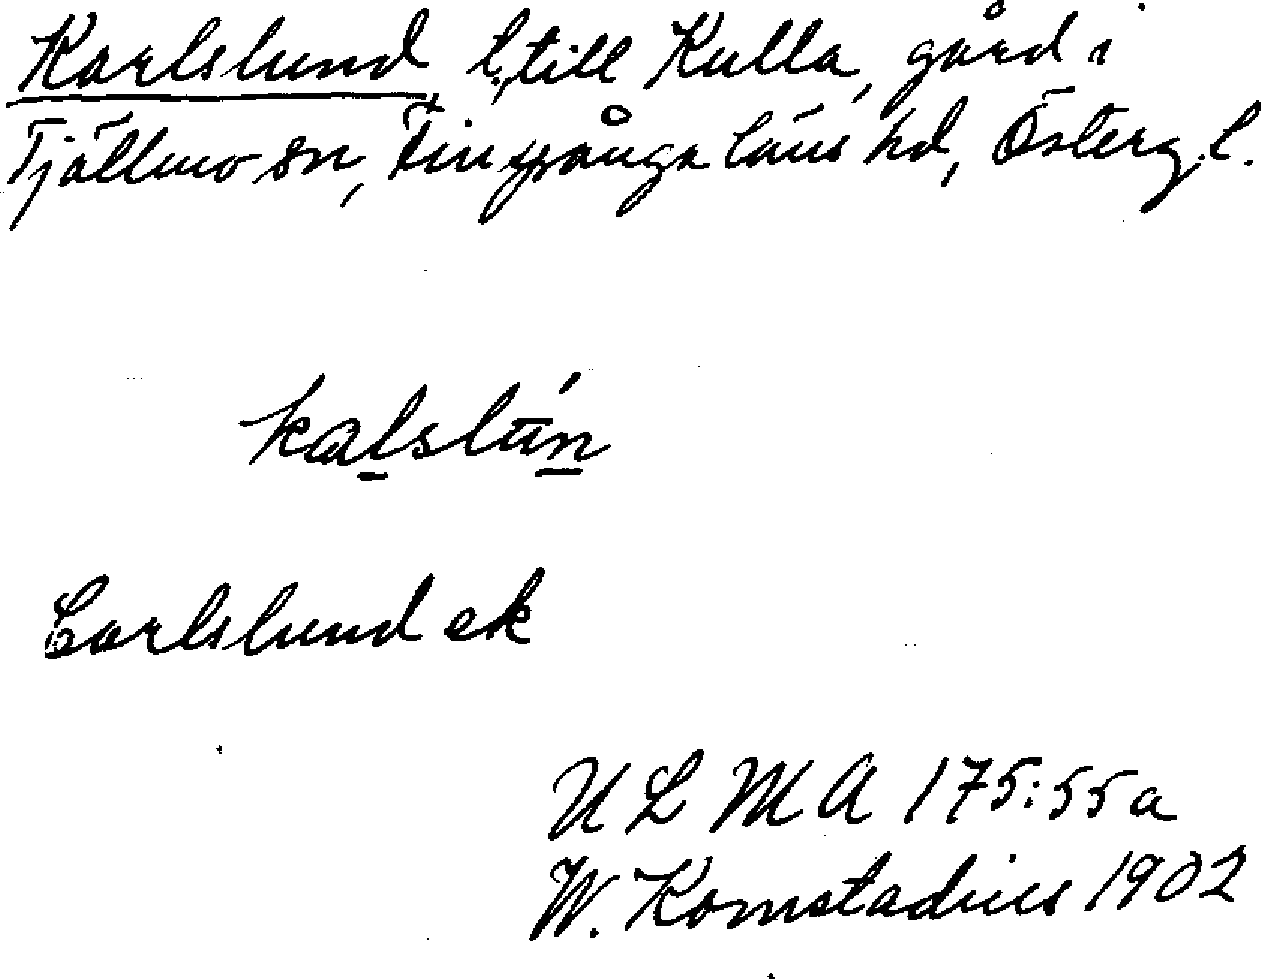 Karlslund, l. till Kulla, gård i
Tjällmo sn, Finspånga läns hd, Österg. l.
kalslún
Carlslund ek
ULMA 175:55a
W. Komstadius 1902